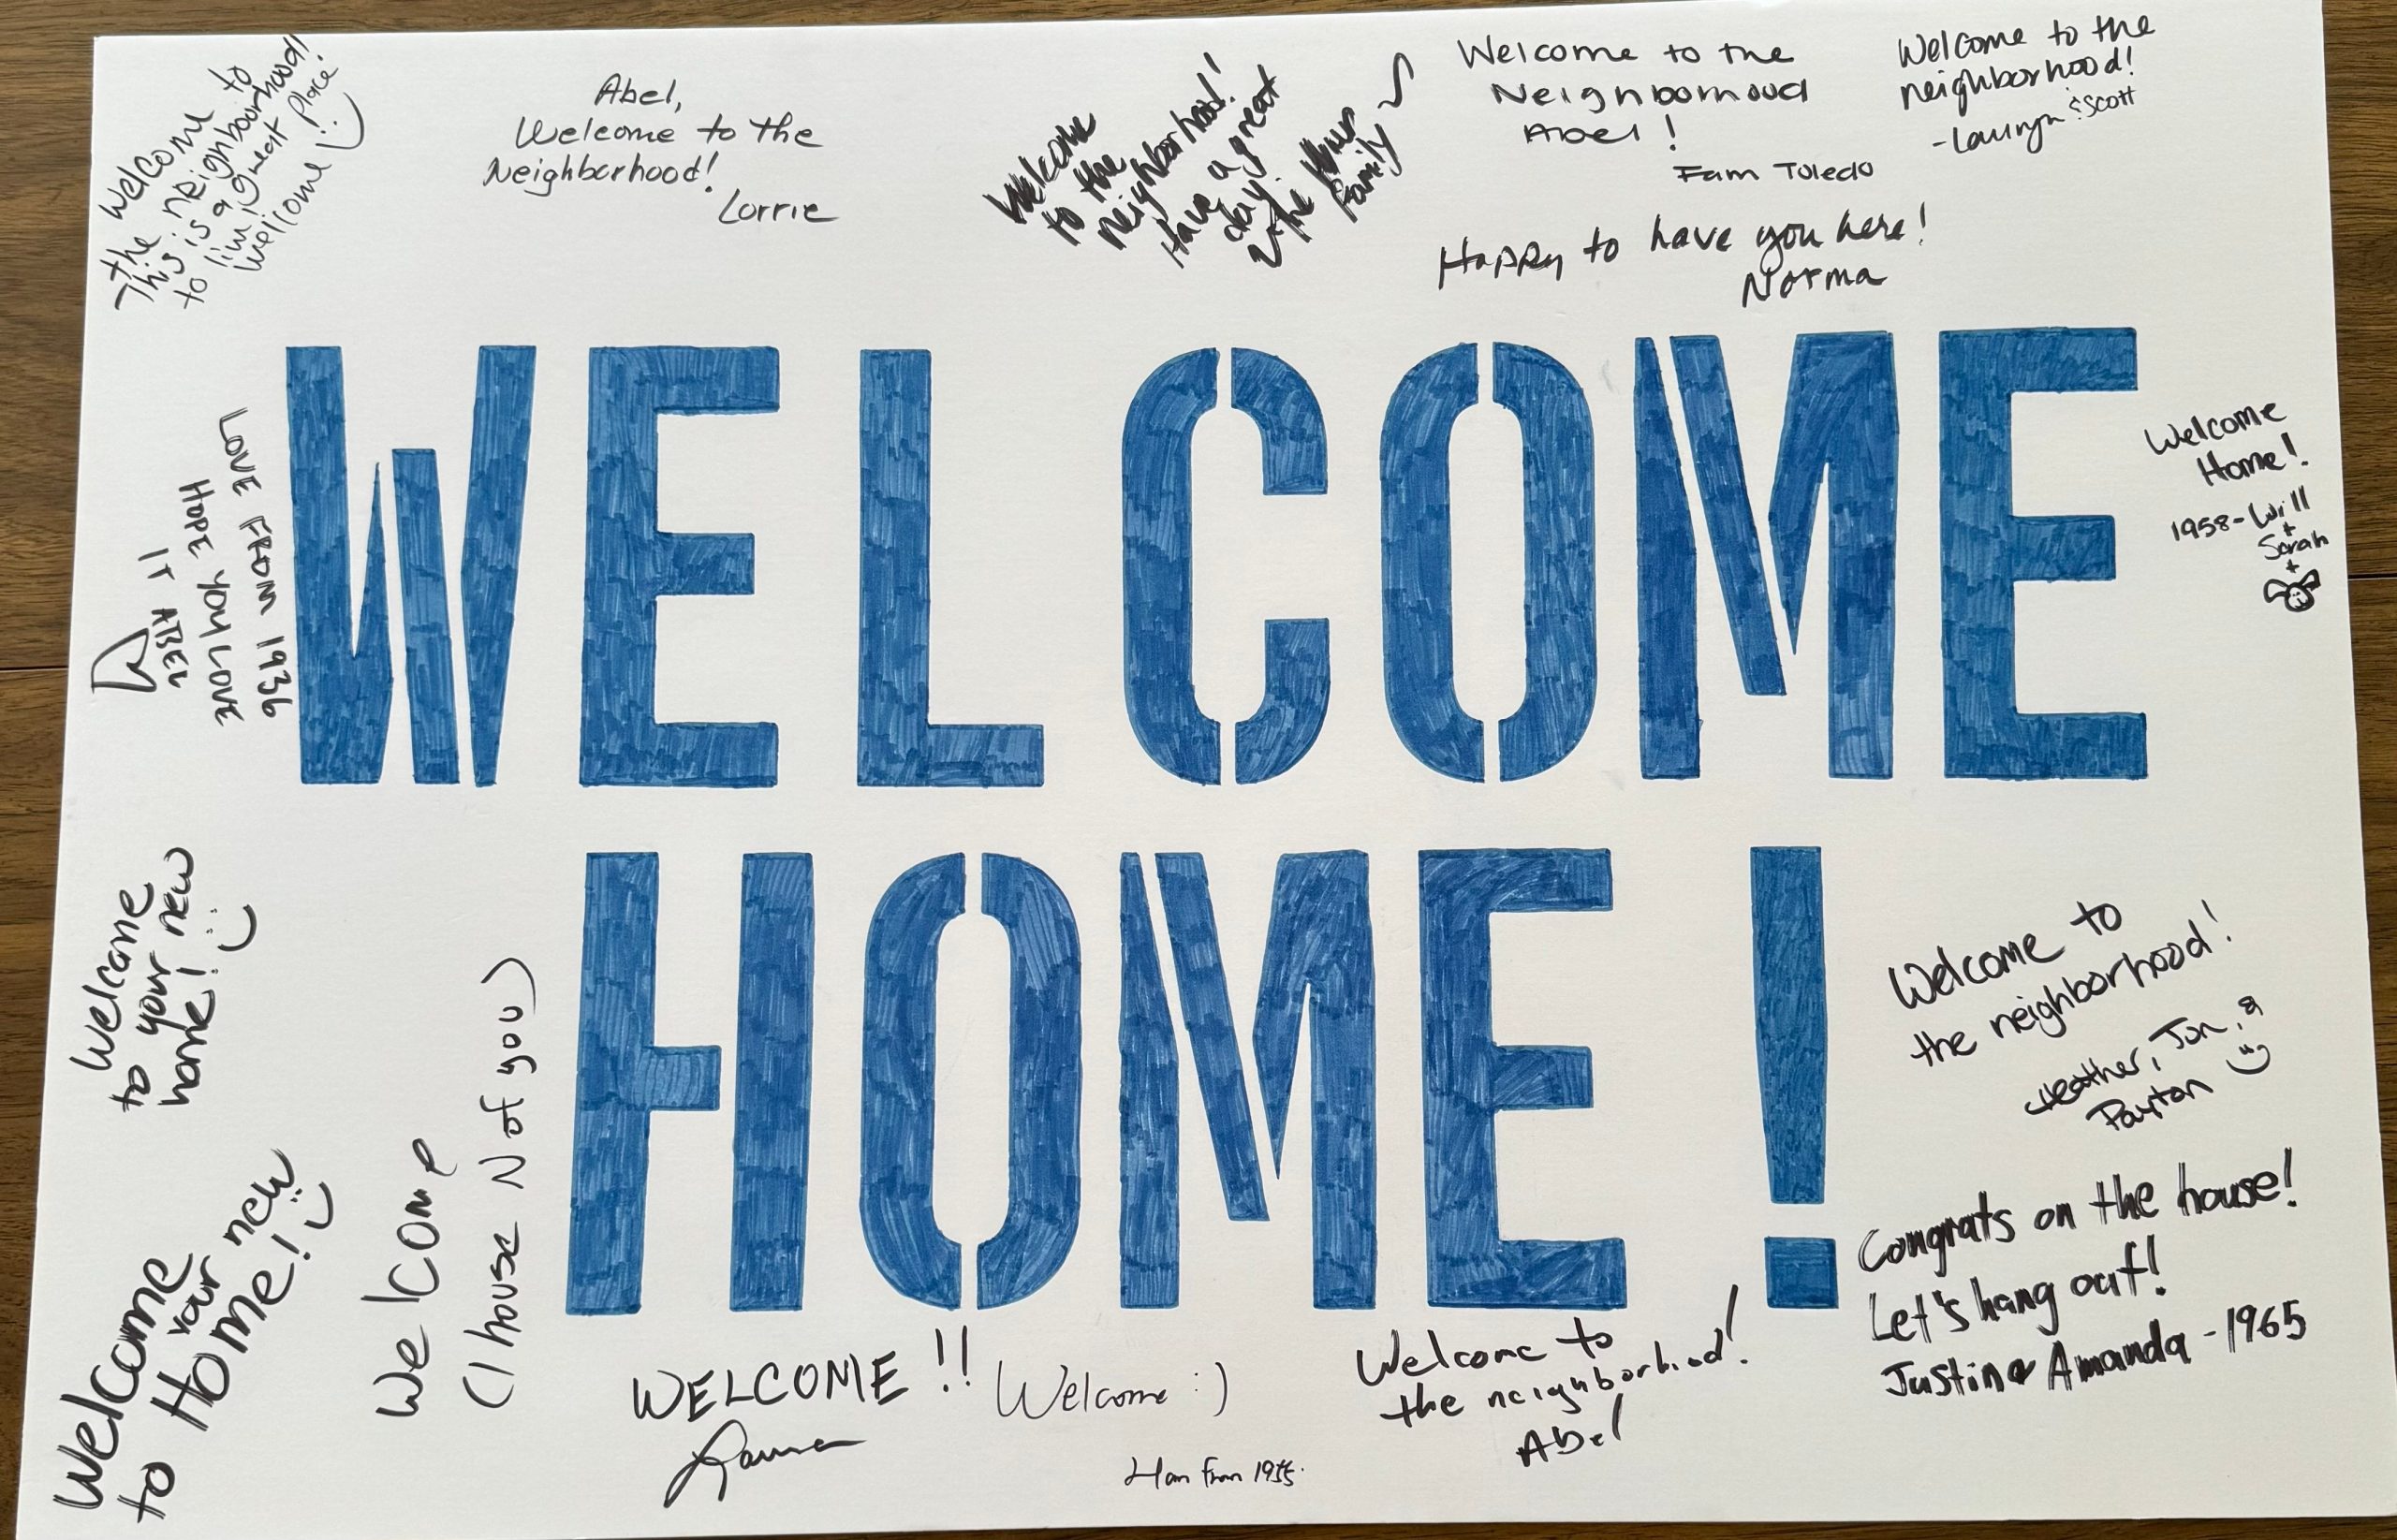 Welcome to
the neighbourhood!
This is a great place!
to live in
welcome
Abel,
Welcome to the
Neighborhood!
Lorrie
Welcome
to the
neighborhood!
Have a great
day.
~The
Family ~
Welcome to the
Neighborhood
Abel!
Fam Toledo
Welcome to the
neighborhood!
-Lauryn & Scott
Happy to have you here!
Norma
WELCOME
HOME!
LOVE FROM 1936
HOPE YOU LOVE
IT ABEL
Welcome
Home!
1958-Will
+
Sarah
+
Welcome
to your new
home!
Welcome
to your new
Home!
Welcome
(1 house N of you)
WELCOME!!
Welcome :)
Han from 1955.
Welcome to
the neighborhood!
Abel
Welcome to
the neighborhood!
Heather, Jon, &
Payton
Congrats on the house!
Let's hang out!
Justin & Amanda - 1965